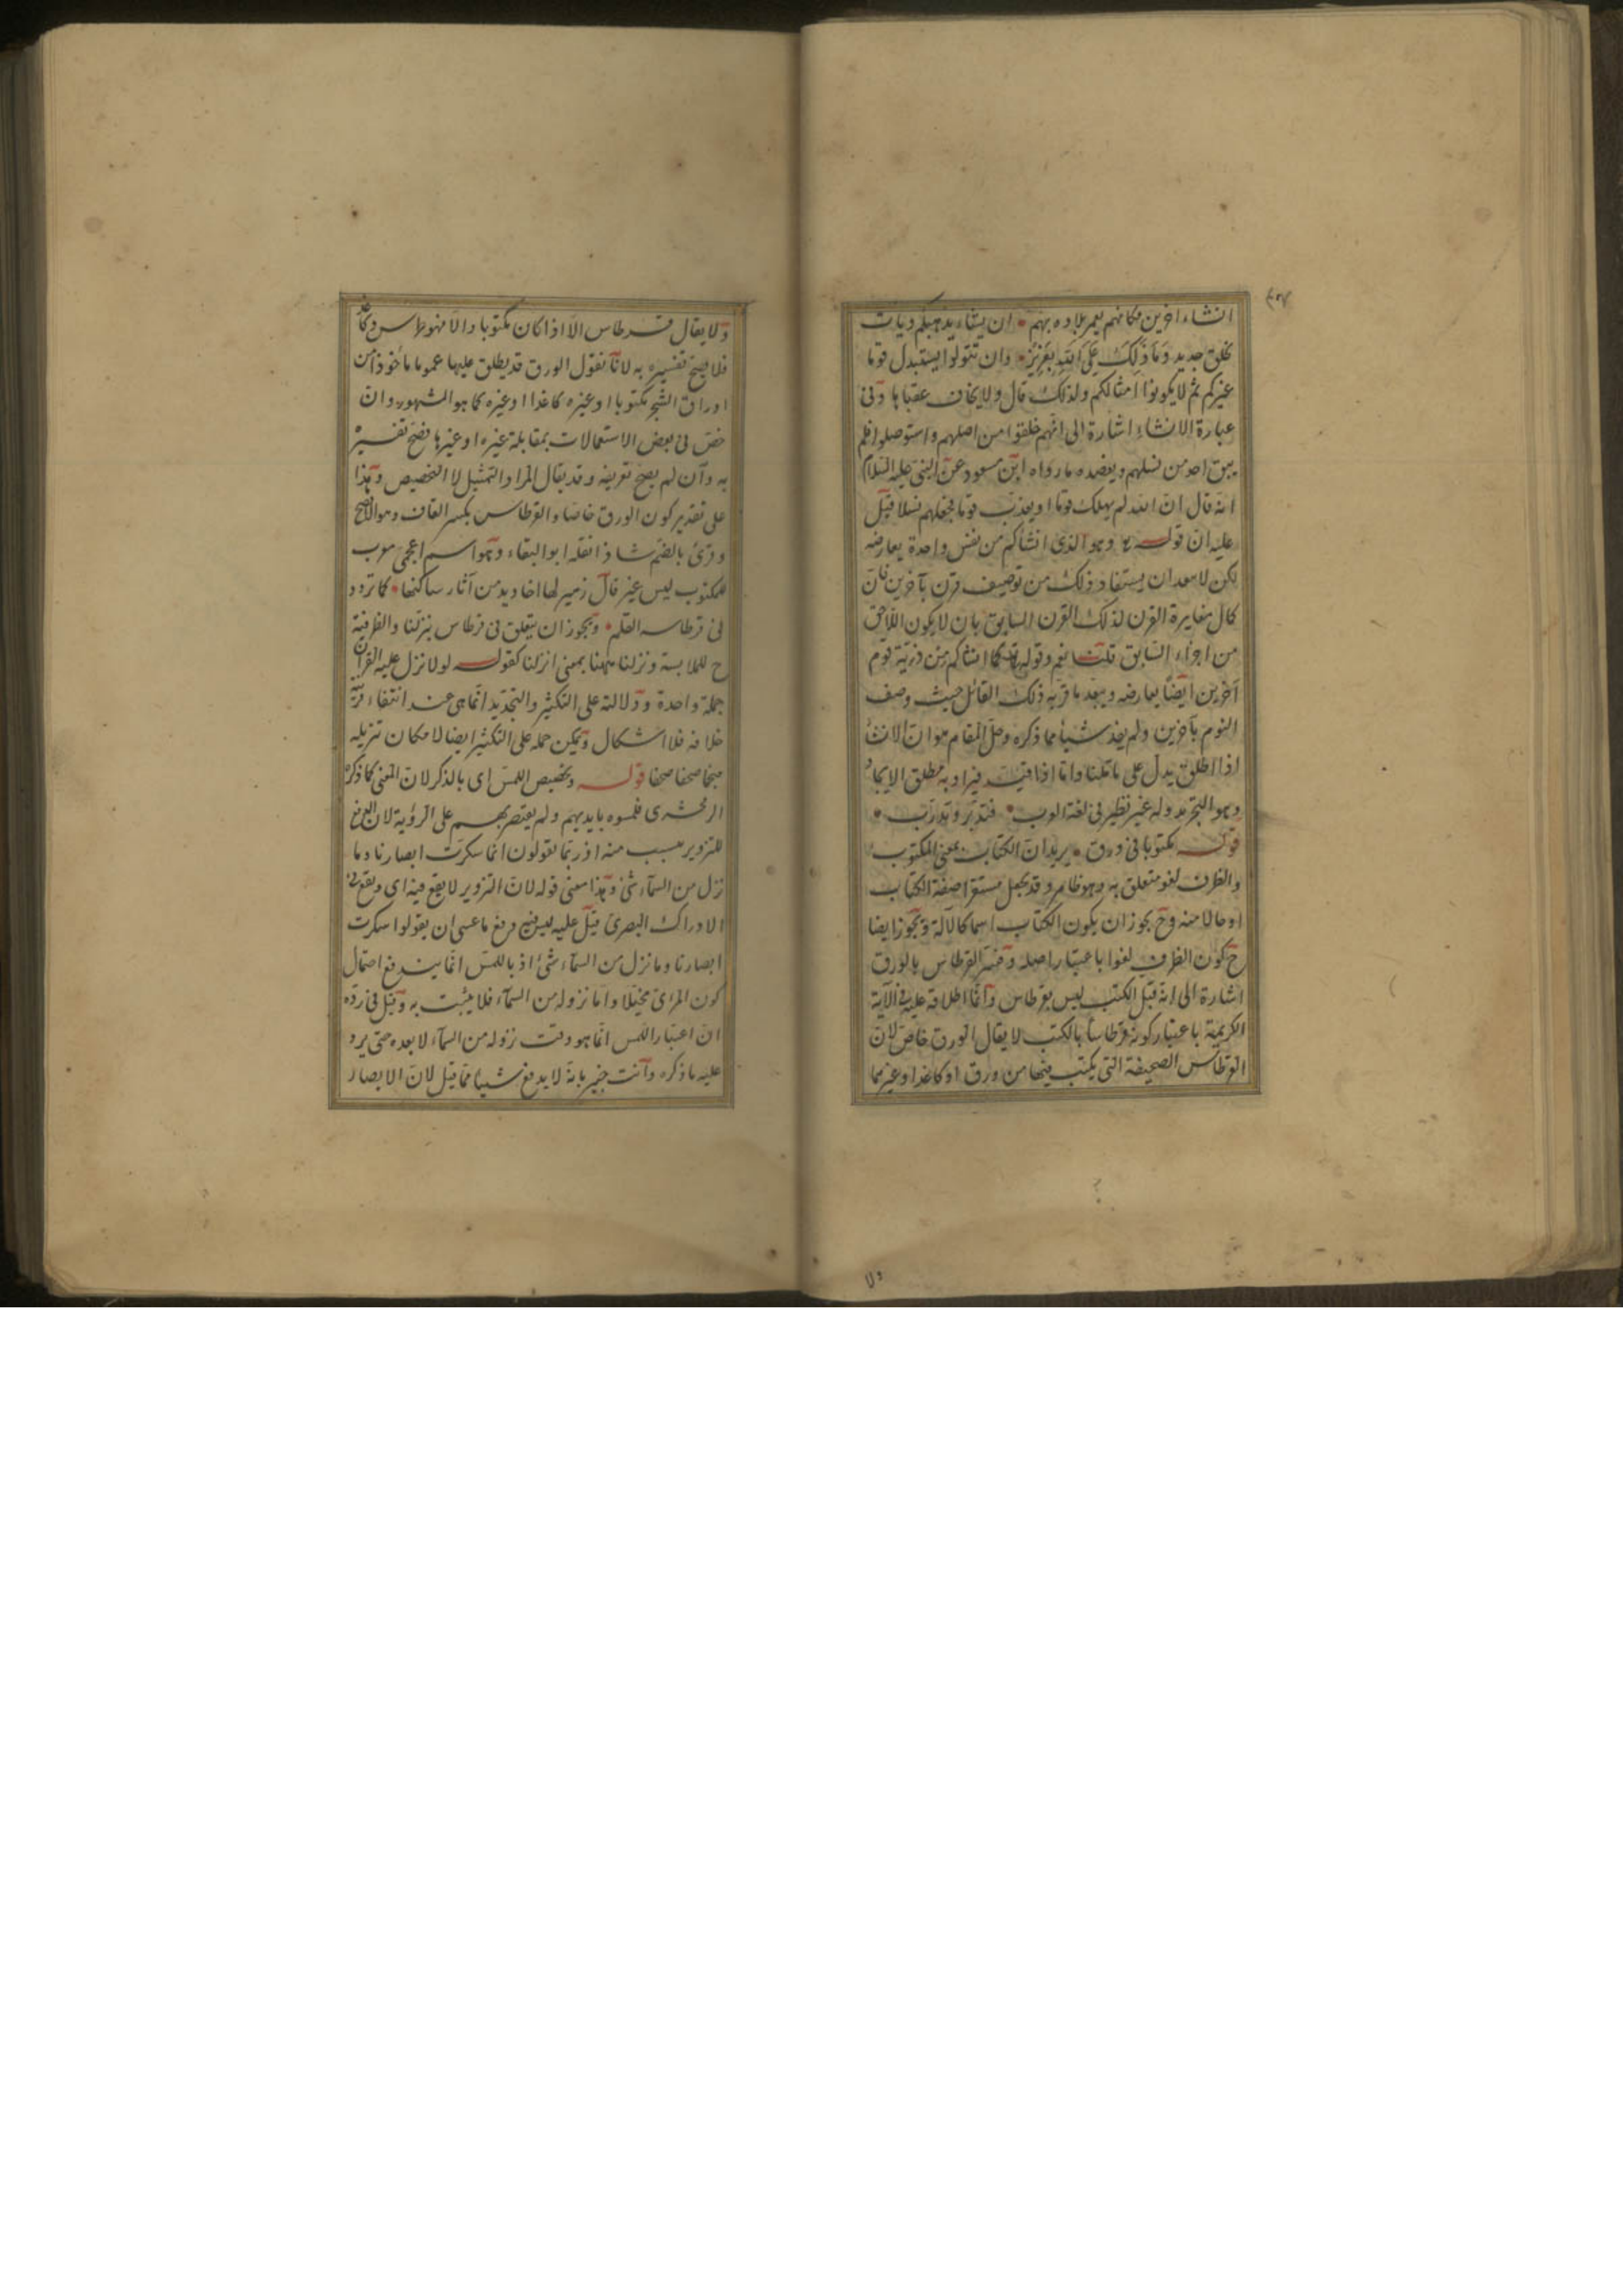 انشاء آخرين مكانهم يعمر بلاده بهم ان يشاء يذهبكم ويأت
بخلق جديد وما ذلك على الله بعزيز وان تتولوا يستبدل قوما
غيركم ثم لا يكونوا امثالكم ولذلك قال ولا يخاف عقباها وفى
عبارة الانشاء اشارة الى انهم خلقوا من اصلهم واستوصلوا فلم
يبق احد من نسلهم ويعضده ما رواه ابن مسعود عن النبى عليه السلام
انه قال ان الله لم يهلك قوما او يعذب قوما فجعل لهم نسلا قيل
عليه ان قوله وهو الذى انشأكم من نفس واحدة يعارضه
لكن لا يبعد ان يستفاد ذلك من توصيف قرن بآخرين فان
كمال مغايرة القرن لذلك القرن السابق بان لا يكون اللاحق
من اجزاء السابق قلنا نعم وقوله كما انشاكم من ذرية قوم
آخرين ايضا يعارضه ويبعد ما قربه ذلك القائل حيث وصف
القوم بآخرين ولم يفد شيأ مما ذكره وحل المقام هو ان الانشأ
اذا اطلق يدل على ما قلنا واما اذا قيد فيراد به مطلق الايجاد
وهو التجريد وله غير نظير فى لغة العرب فتدبر وتدرب
قوله مكتوبا فى ورق يريد ان الكتاب بمعنى المكتوب
والظرف لغو متعلق به وهو ظاهر وقد يجعل مستقرا صفة الكتاب
او حالا منه وح يجوز ان يكون الكتاب اسما كالآلة ويجوز ايضا
ح كون الظرف لغوا باعتبار اصله وفسر القرطاس بالورق
اشارة الى انه قبل الكتب ليس بقرطاس وانما اطلاقه عليه فى الآية
الكريمة باعتبار كونه قرطاسا بالكتب لا يقال الورق خاص لان
القرطاس الصحيفة التى يكتب فيها من ورق او كاغد او غيرهما
ولا
ولا يقال قرطاس الا اذا كان مكتوبا والا فهو طرس وكاغد
فلا يصح تفسيره به لانا نقول الورق قد يطلق عليها عموما مأخوذا من
اوراق الشجر مكتوبا او غيره كاغدا او غيره كما هو المشهور وان
خص فى بعض الاستعمالات بمقابلة غيره او غيرها فصح تفسيره
به وان لم يصح تعريفه وقد يقال المراد التمثيل لا التخصيص وهذا
على تقدير كون الورق خاصا والقرطاس بكسر القاف وهو الافصح
وقرئ بالضم شاذا نقله ابو البقاء وهو اسم اعجمى معرب
للمكتوب ليس غير قال زهير لها اخاديد من آثار ساكنها كما تردد
فى قرطاسه القلم ويجوز ان يتعلق فى قرطاس بنزلنا والظرفية
ح للملابسة ونزلنا ههنا بمعنى انزلنا كقوله لولا نزل عليه القرآن
جملة واحدة ودلالته على التكثير والتجديد انما هى عند انتفاء قرينة
خلافه فلا اشكال ويمكن حمله على التكثير ايضا لامكان تنزيله
صحفا صحفا قوله وتخصيص اللمس اى بالذكر لان المعنى كما ذكره
الزمخشرى فلمسوه بايديهم ولم يقتصر بهم على الرؤية لان
للتزوير بسبب منه اذ ربما يقولون انما سكرت ابصارنا وما
نزل من السمآء شئ وهذا معنى قوله لان التزوير لا يقع فيه اى ويقع فى
الادراك البصرى قيل عليه ليس فيه دفع ما عسى ان يقولوا سكرت
ابصارنا وما نزل من السمآء شئ اذ باللمس انما يندفع احتمال
كون المرئى مخيلا واما نزوله من السمآء فلا يثبت به وقيل فى رده
ان اعتبار اللمس انما هو وقت نزوله من السمآء لا بعده حتى يرد
عليه ما ذكره وانت خبير بانه لا يدفع شيأ مما قيل لان الابصار